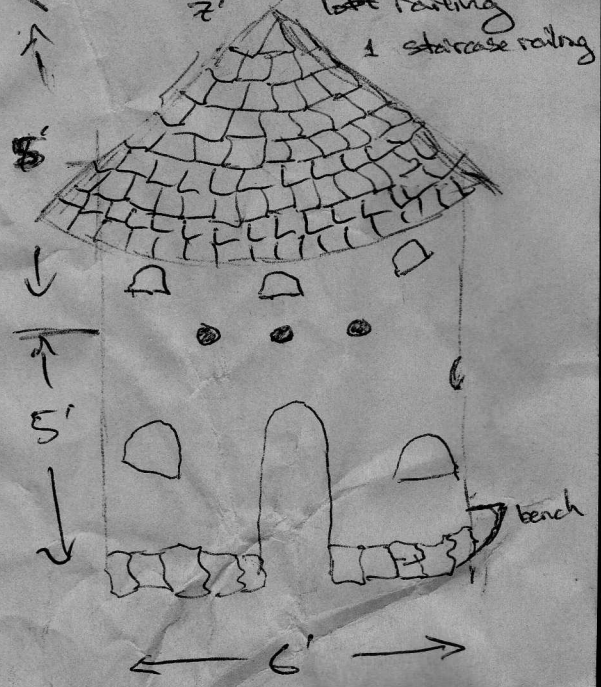 7'
loft railing
1 staircase railing
5'
5'
bench
6'